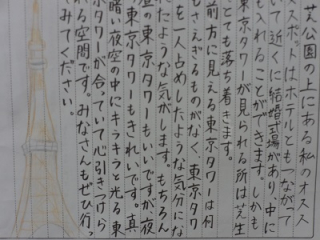 芝公園の上にある私のオスス
メスポットはホテルともつながって
いて近くに結婚式場があり、中に
も入れることができます。しかも
東京タワーが見られる所は芝生
とても落ち着きます。
前方に見える東京タワーは何
もさえぎるものがなく、東京タワ
を一人占めしたような気分にな
たような気がします。もちろん
昼の東京タワーもいいですが夜
東京タワーもきれいです。真
暗い夜空の中にキラキラと光る東
京タワーが合っていて心引きつけら
る空間です。みなさんもぜひ行っ
てみてください。